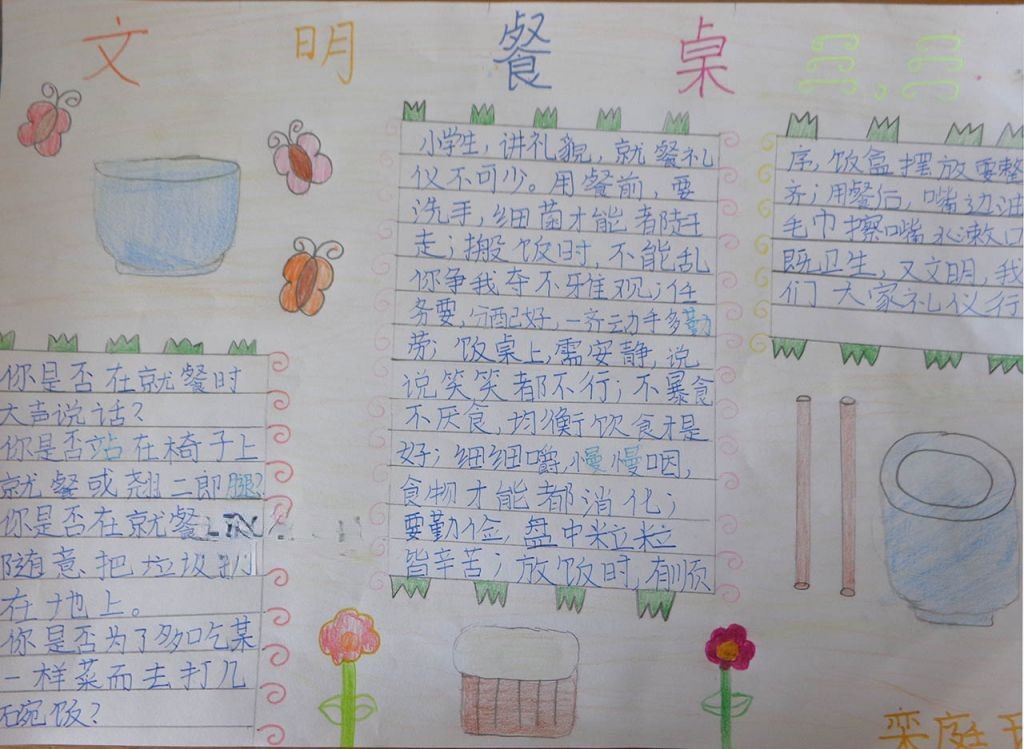 文明餐桌
你是否在就餐时
大声说话？
你是否站在椅子上
就餐或翘二郎腿？
你是否在就餐
随意把垃圾扒
在地上。
你是否为了多吃某
一样菜而去打几
碗饭？
小学生，讲礼貌，就餐礼
仪不可少。用餐前，要
洗手，细菌才能都赶
走；搬饭时，不能乱
你争我夺不雅观；任
务要，分配好，一齐动手多勤
劳；饭桌上，需安静，说
说笑笑都不行；不暴食
不厌食，均衡饮食才是
好；细细嚼，慢慢咽，
食物才能都消化；
要勤俭，盘中粒粒
皆辛苦；放饭时，有顺
序，饭盒摆放要整
齐；用餐后，嘴边油
毛巾擦嘴，水漱口
既卫生，又文明，我
们大家礼仪行
栾庭